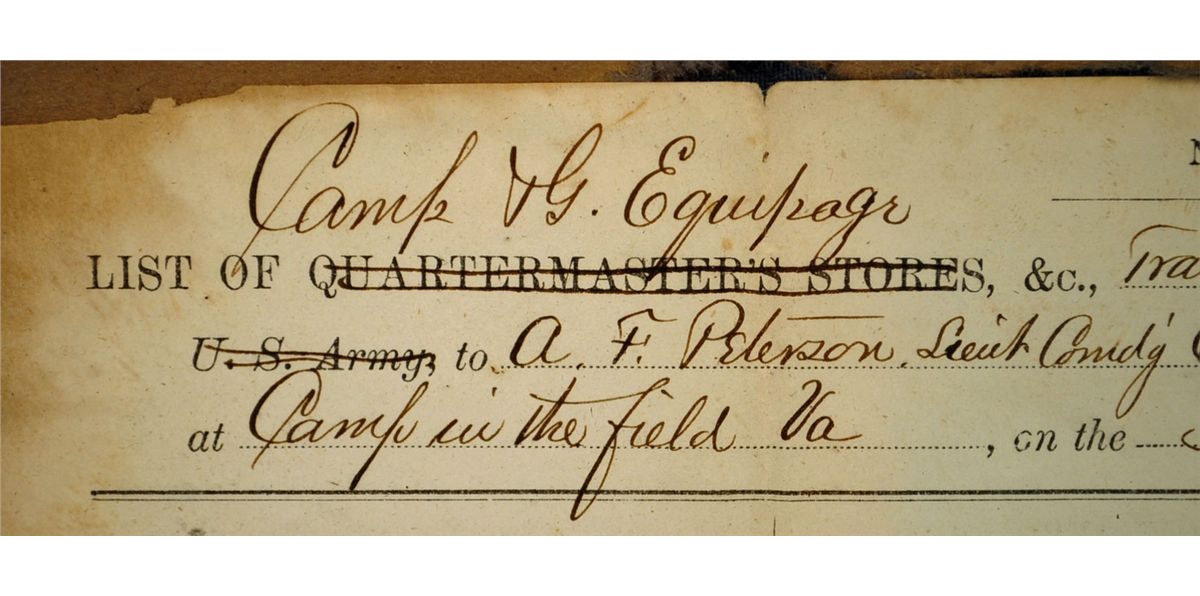 Camp & G. Equipage
LIST OF QUARTERMASTER'S STORES, &c.,
U. S. Army, to A. F. Peterson Lieut Comd'g
at Camp in the field Va, on the